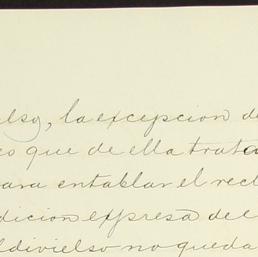 elso, la excepcion de
es que de ella trata
para entablar el recl
dicion expresa del
ldivielso no queda